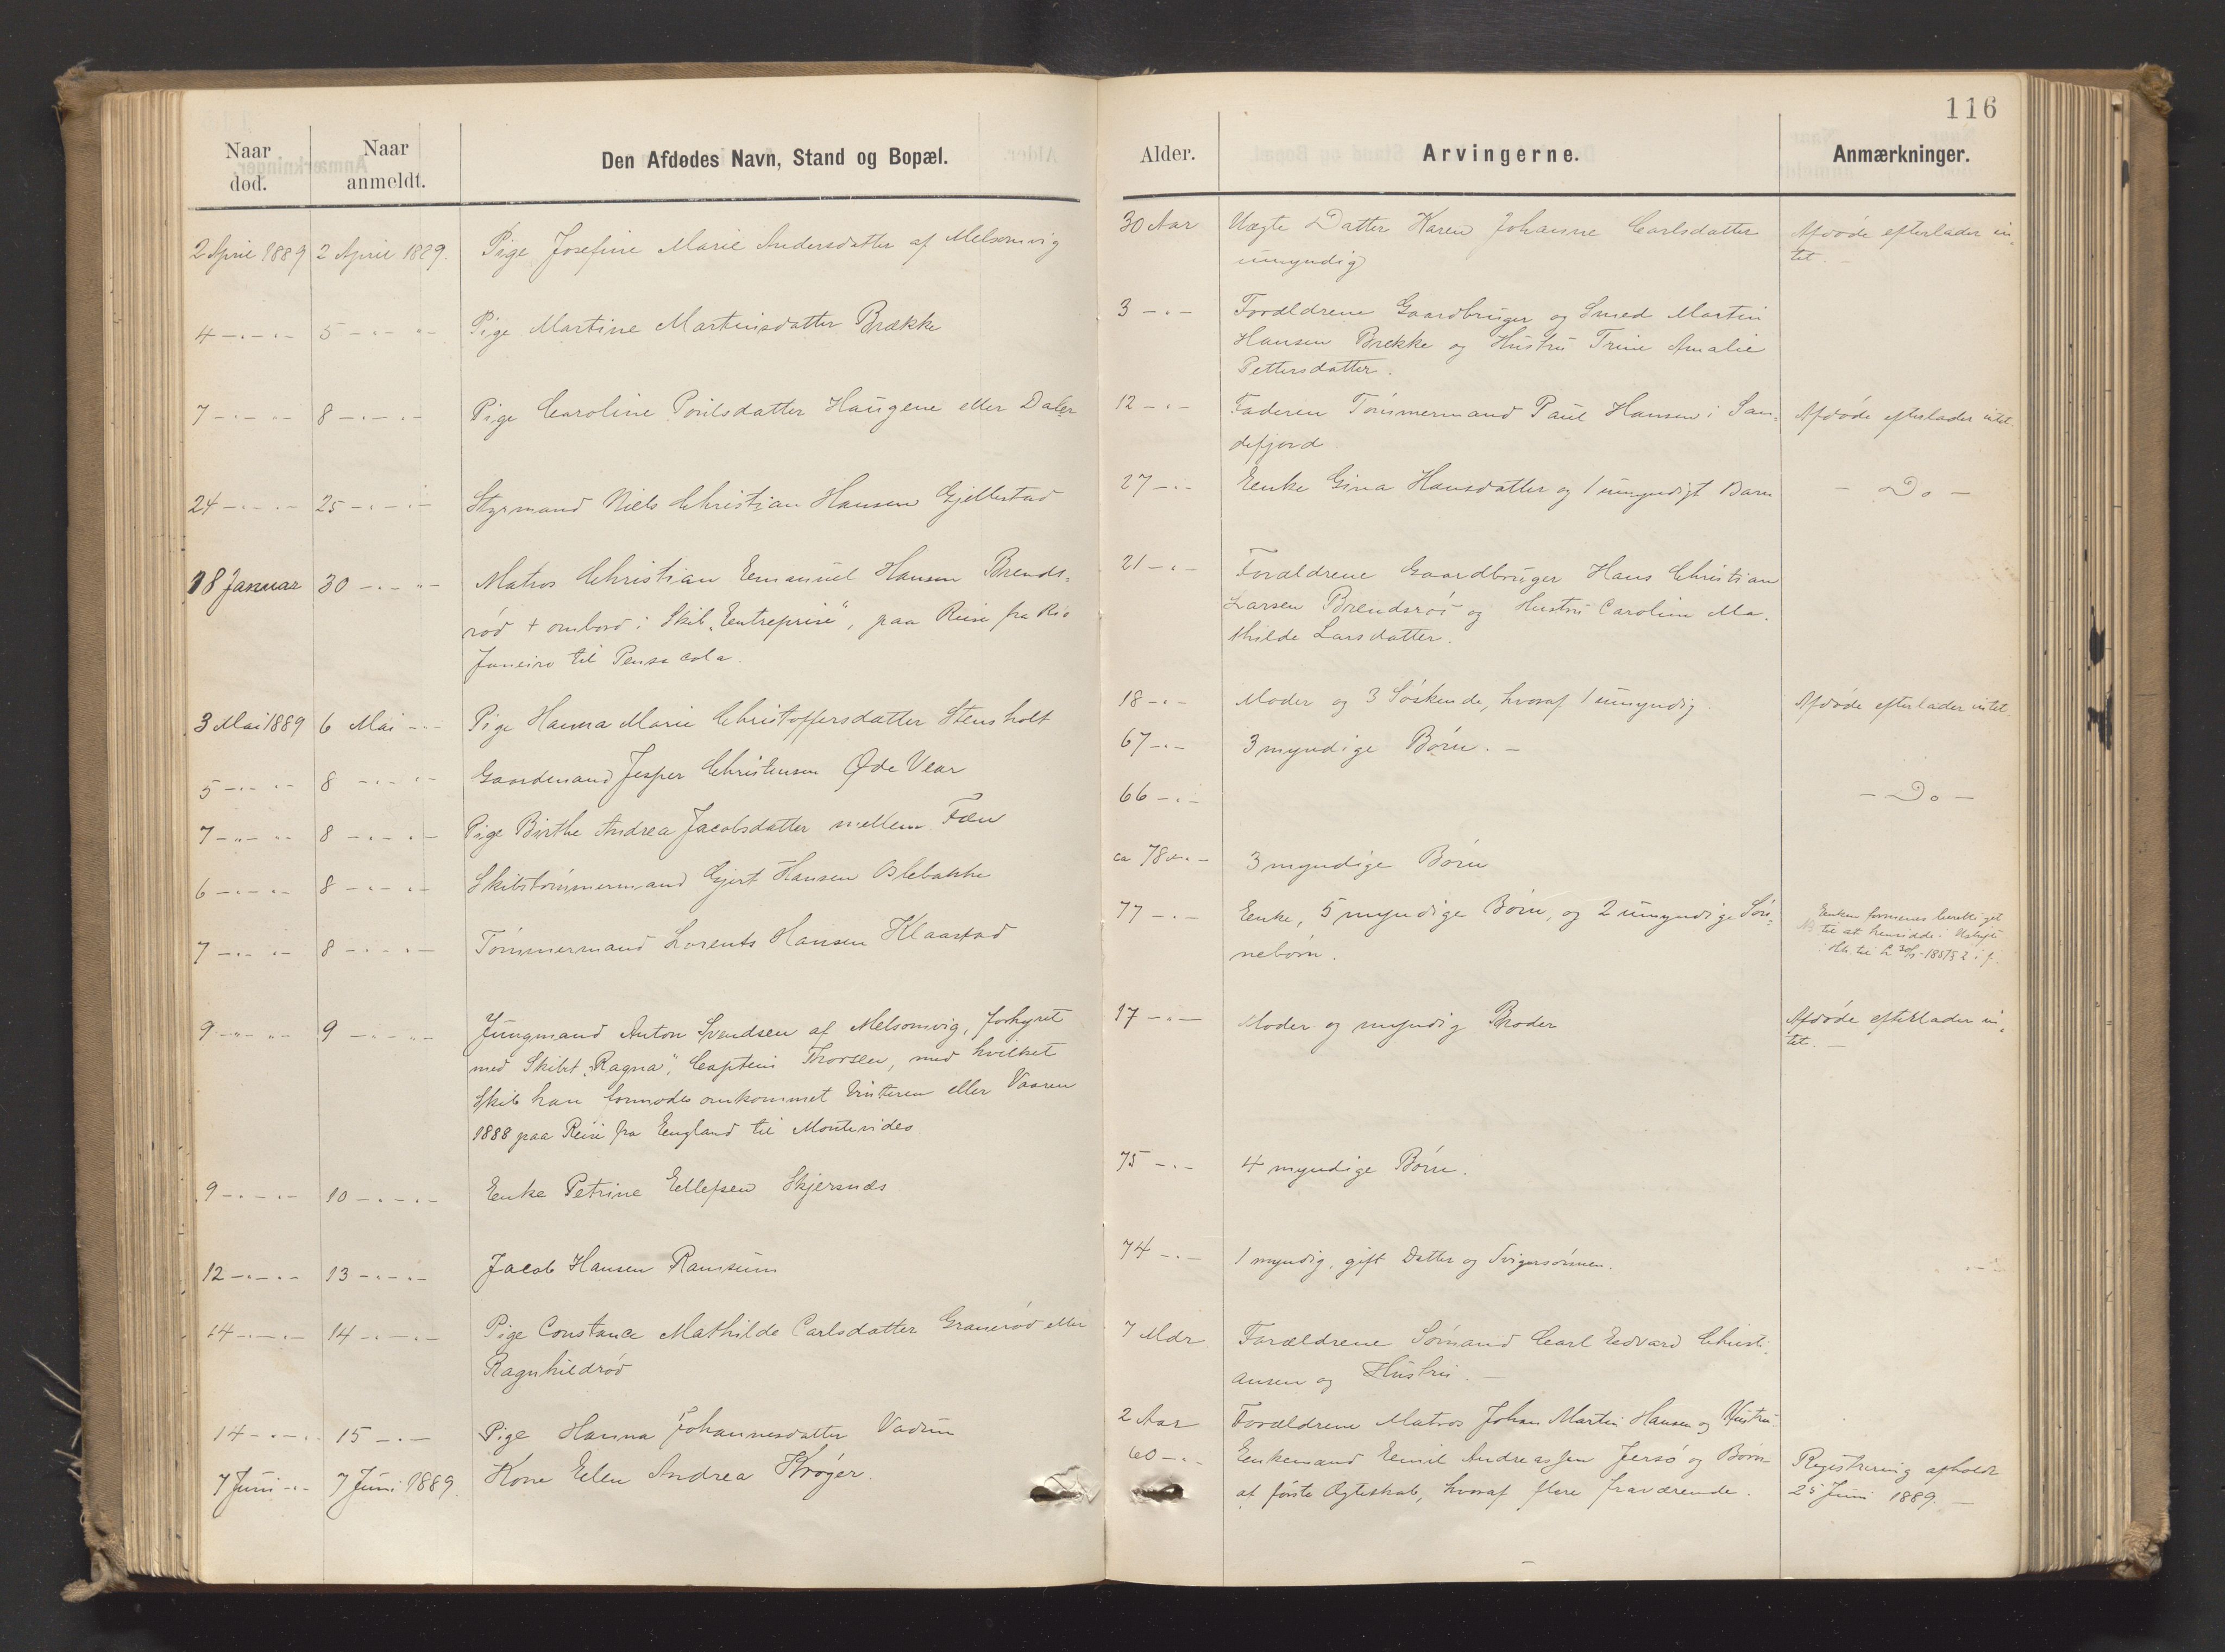 116
Naar død.
Naar anmeldt.
Den Afdødes Navn, Stand og Bopæl.
Alder.
Arvingerne.
Anmærkninger.
2 April 1889 2 April 1889. Pige Josefine Marie Andersdatter af Melsomvig
30 Aar Uægte Datter Karen Johanne Carlsdatter
umyndig
Afdøde efterlader in-
tet. -
4 -"- "- 5 -"- "- Pige Martine Martinsdatter Brække
3 -"- Forældrene Gaardbruger og Smed Martin
Hansen Brekke og Hustru Trine Amalie
Pettersdatter.
7 -"- "- 8 -"- "- Pige Caroline Poulsdatter Haugene eller Dalen
12 -"- Faderen Tømmermand Paul Hansen i San-
defjord
Afdøde efterlader intet.
24 -"- "- 25 -"- "- Styrmand Niels Christian Hansen Gjellestad
27 -"- Enke Gina Hansdatter og 1 umyndigt Barn
- Do -
18 Januar 30 -"- "- Matros Christian Emanuel Hansen Brends-
rød + ombord i Skib "Entreprise", paa Reise fra Rio
Janeiro til Pensacola.
21 -"- Forældrene Gaardbruger Hans Christian
Larsen Brendsrød og Hustru Caroline Ma-
thilde Larsdatter.
3 Mai 1889 6 Mai -"- Pige Hanna Marie Christoffersdatter Stensholt
18 -"- Moder og 3 Søskende, hvoraf 1 umyndig.
Afdøde efterlader intet.
5 -"- "- 8 -"- "- Gaardmand Jesper Christensen Øde Vear
67 -"- 3 myndige Børn. -
7 -"- "- 8 -"- "- Pige Birthe Andrea Jacobsdatter mellem Fæn
66 -"-
- Do -
6 -"- "- 8 -"- "- Skibstømmermand Gjert Hansen Oslebakke
ca 78 -"- 3 myndige Børn
7 -"- "- 8 -"- "- Tømmermand Lorents Hansen Klaastad
77 -"- Enke, 5 myndige Børn, og 2 umyndige Søn-
nebørn.
Enken formenes berettiget
til at hensidde i Uskiftet
9 -"- "- 9 -"- "- Jungmand Anton Svendsen af Melsomvig, forhyret
med Skibet "Ragna", Captein Thorsen, med hvilket
Skib han formodes omkommet Vinteren eller Vaaren
1888 paa Reise fra England til Montevideo.
17 -"- Moder og myndig Broder
Afdøde efterlader in-
tet. -
9 -"- "- 10 -"- "- Enke Petrine Ellefsen Skjersnæs
75 -"- 4 myndige Børn.
12 -"- "- 13 -"- "- Jacob Hansen Ramsum
74 -"- 1 myndig, gift Datter og Svigersønnen.
14 -"- "- 14 -"- "- Pige Constance Mathilde Carlsdatter Granerød eller
Ragnhildrød
7 Mdr. Forældrene Sømand Carl Edvard Christi-
ansen og Hustru. -
14 -"- "- 15 -"- Pige Hanna Johannesdatter Vadum
2 Aar Forældrene Matros Johan Martin Hansen og Hustru
7 Juni -"- 7 Juni 1889. Kone Elen Andrea Krøger.
60 -"- Enkemand Emil Andreassen Jersø og Børn
af første Ægteskab, hvoraf flere fraværende.
Registrering afholdt
25 Juni 1889. -